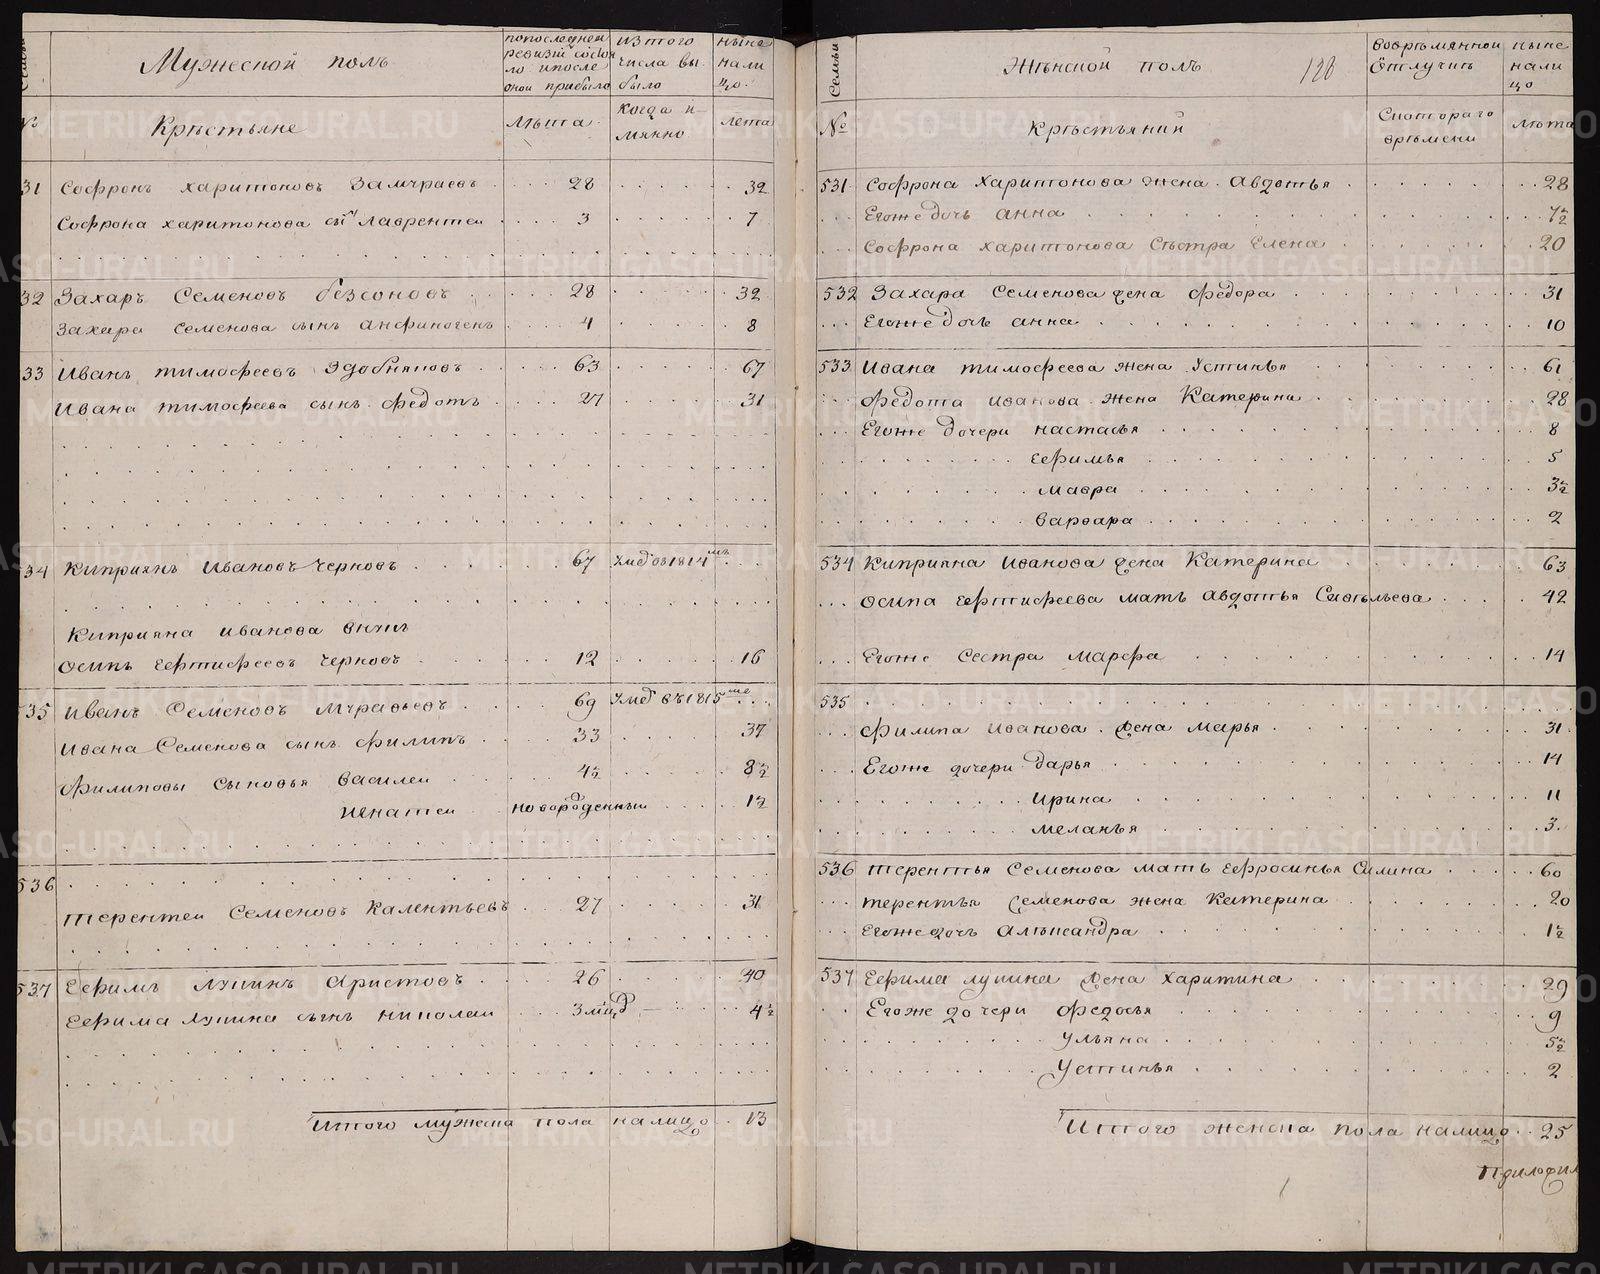 Мужеской полъ
по последней
ревизіи состоя
ло и после
оной прибыло
из того
числа вы
было
ныне
нали
цо
№
Крестьяне
Лѣта
Когда и
мянно
лета
31 Софронъ Харитоновъ 28 32
Софрона Харитонова сынъ Лаврентеи 3 7
32 Захаръ Семеновъ Безсоновъ 28 32
Захара Семенова сынъ Анфиногенъ 4 8
33 Иванъ Тимофеевъ 63 67
Ивана Тимофеева сынъ Федотъ 27 31
34 Киприянъ Ивановъ Черновъ 67 1814
Киприяна Иванова внукъ
Осипъ Ефтифеевъ Черновъ 12 16
535 Иванъ Семеновъ Муравьевъ 69 1815
Ивана Семенова сынъ Филипъ 33 37
Филиповы сыновья Василеи 4½ 8½
Игнатеи новорожденныи 1½
536
Терентеи Семеновъ Калентьевъ 27 31
537 Ефимъ Лукинъ Аристовъ 26 40
Ефима Лукина сынъ Николаи 3 4½
Итого мужеска пола налицо 13
Семьи
Женской полъ
во временной
отлучке
ныне
нали
цо
№
Крестьяний
С котораго
времени
лѣта
531 Софрона Харитонова жена Авдотья 28
Егоже дочь Анна 7½
Софрона Харитонова сестра Елена 20
532 Захара Семенова жена Федора 31
Егоже дочь Анна 10
533 Ивана Тимофеева жена Устинья 61
Федота Иванова жена Катерина 28
Егоже дочери Настасья 8
Ефимья 5
Мавра 3½
Варвара 2
534 Киприяна Иванова жена Катерина 63
Осипа Ефтифеева мать Авдотья Савельева 42
Егоже сестра Марфа 14
535
Филипа Иванова жена Марья 31
Егоже дочери Дарья 14
Ирина 11
Меланья 3
536 Терентья Семенова мать Ефросинья Силина 60
Терентья Семенова жена Катерина 20
Егоже дочь Александра 1½
537 Ефима Лукина жена Харитина 29
Егоже дочери Федосья 9
Ульяна 5½
Устинья 2
Итого женска пола налицо 25
METRIKI.GASO-URAL.RU